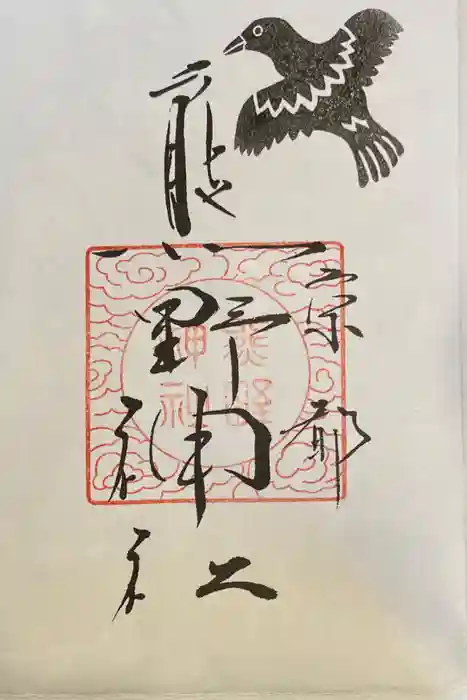 京都
熊野神社
熊野
神社